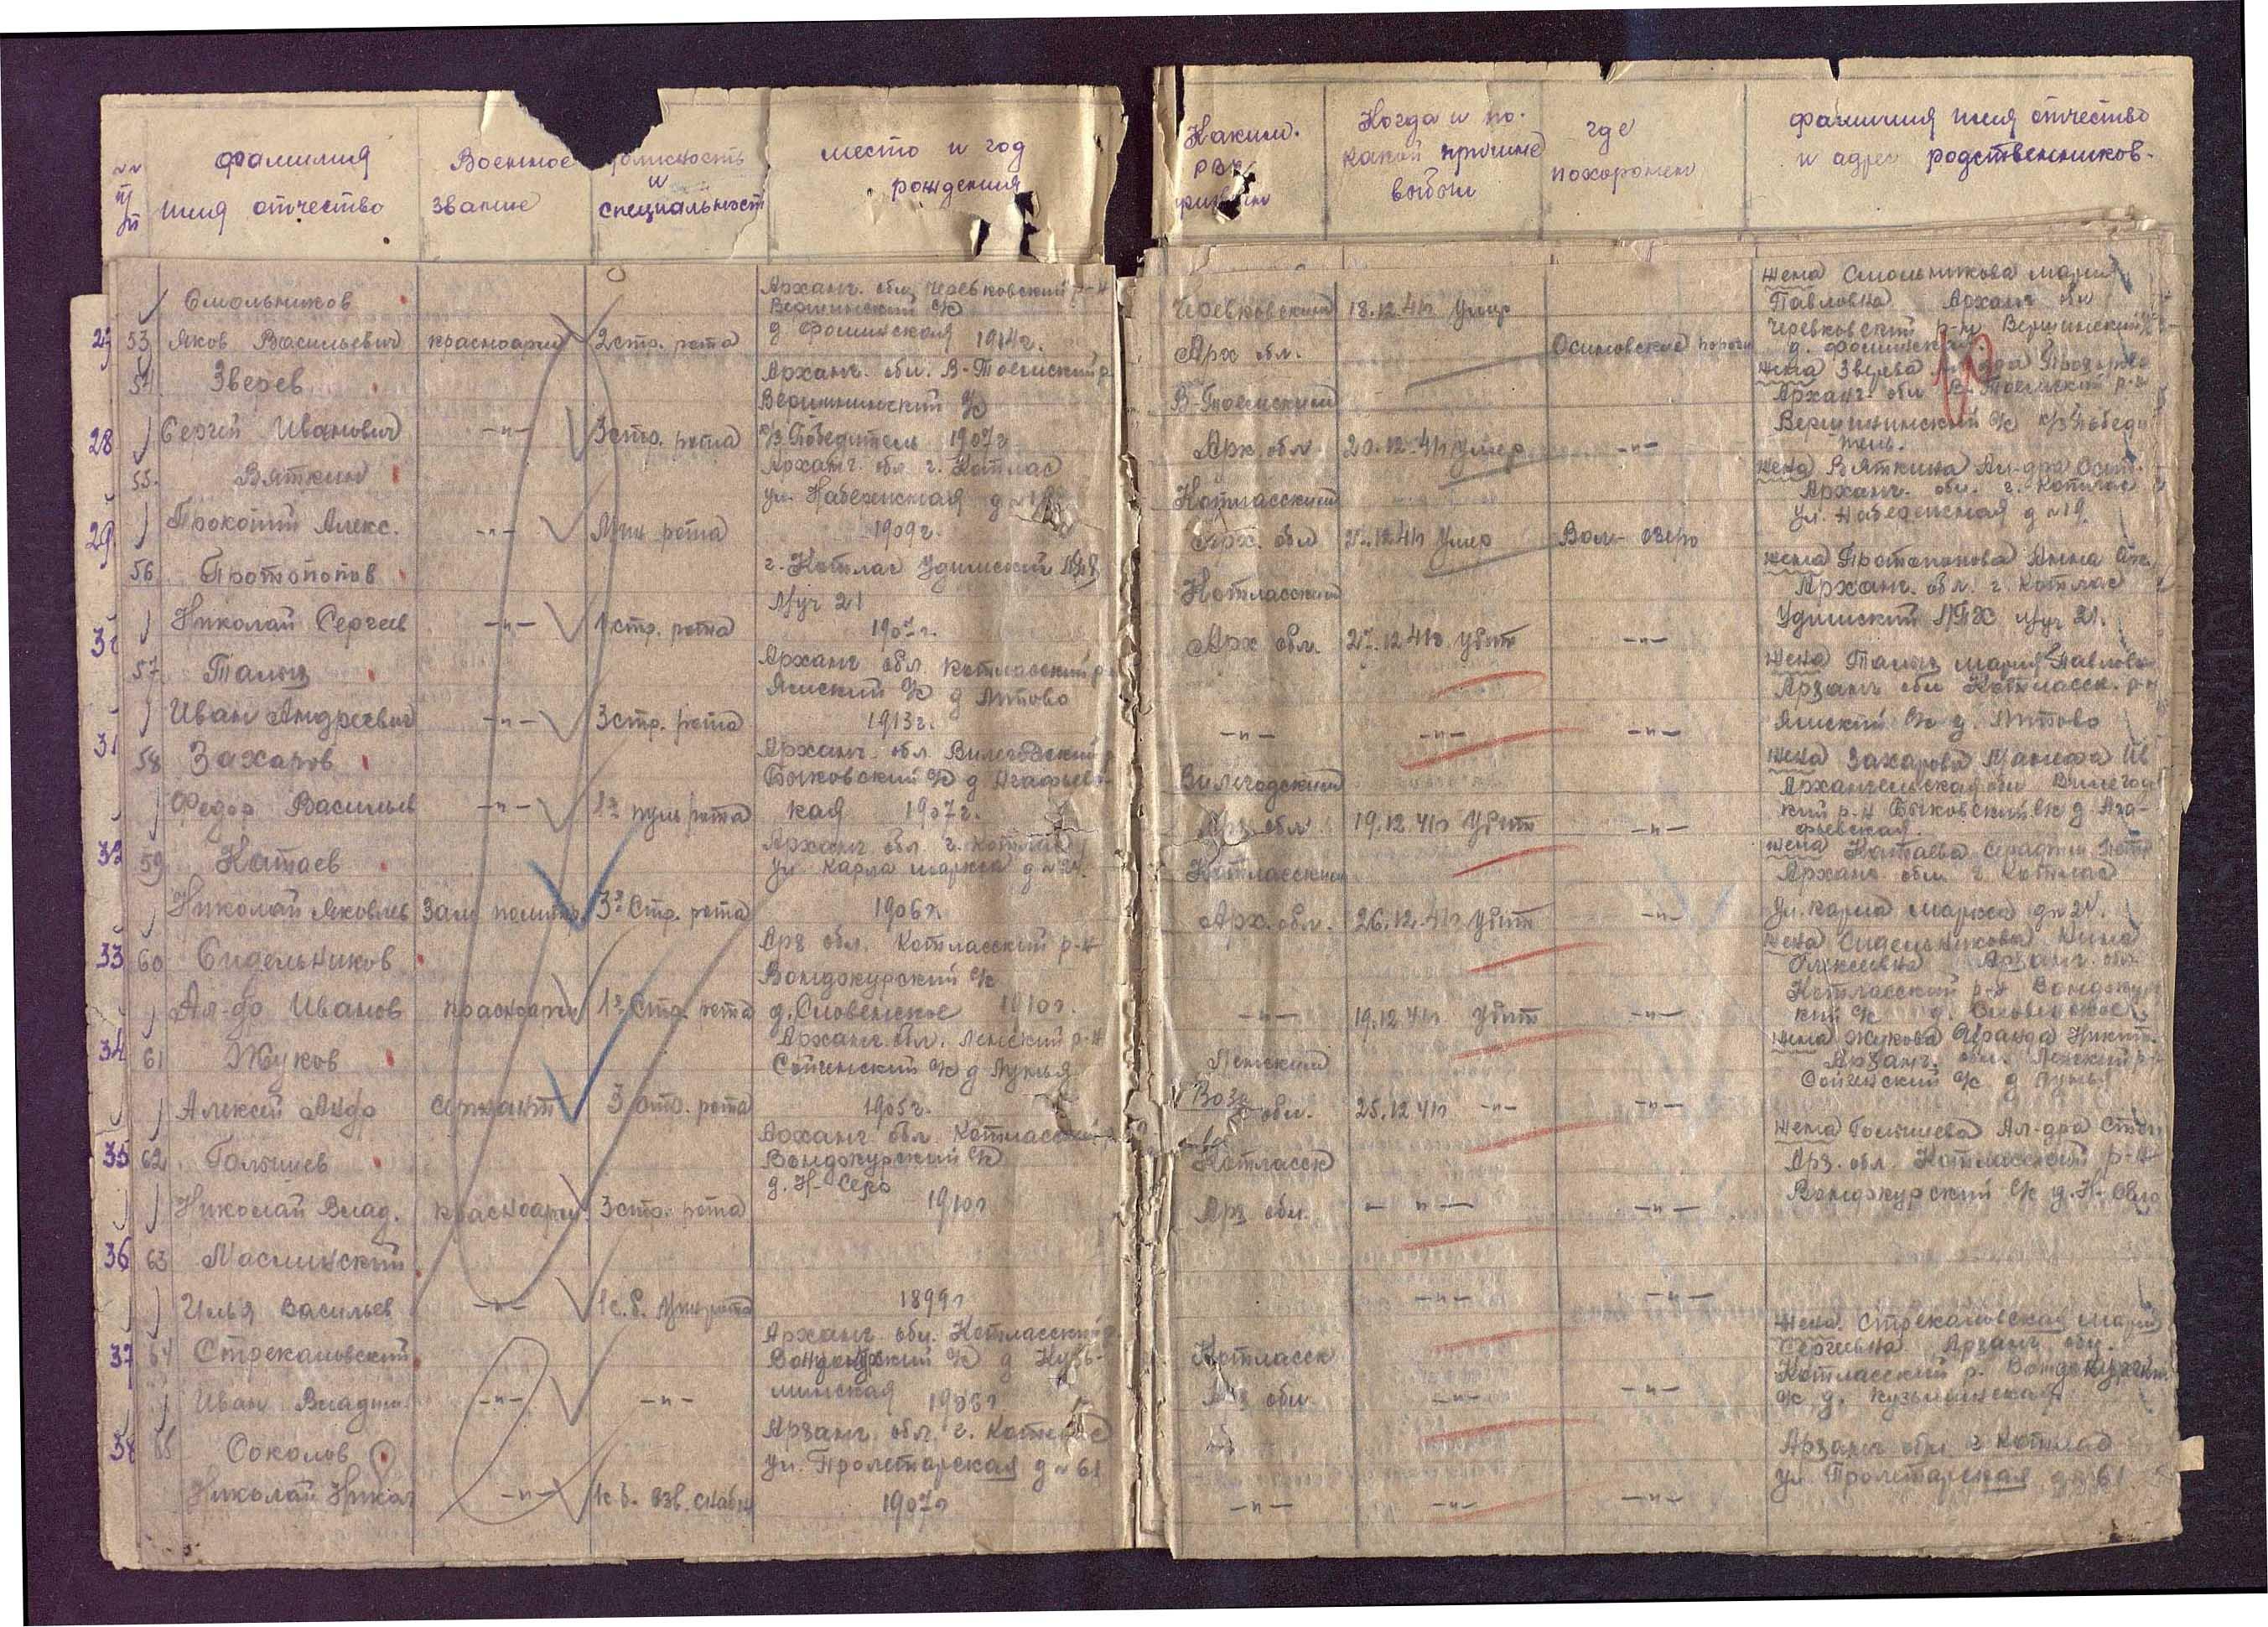 №№ п/п
фамилия
имя отчество
Военное
звание
должность
и
специальност
место и год
рождения
Каким
РВК
Когда и по
какой причине
выбыл
где
похоронен
фамилия имя отчество
и адрес родственников.
53 Смольников
Яков Васильевич красноарм 2 стр. рота
Арханг. обл. Черевковский р-н
Вершинский с/с
д. Фоминская 1914г.
Черевковский 18.12.41г умер
Арх обл. Осиновские пороги
жена Смольникова Мария
Павловна Арханг обл
Черевковский р-н Вершинский с/с
д. Фоминская
28 54 Зверев
Сергей Иванович -"- 3 стр. рота
Арханг. обл. В-Тоемский р
Вершининский с/с
к/з Победитель 1907г
В-Тоемский
Арх. обл 20.12.41г умер -"-
жена Зверева
Арханг. обл В-Тоемский р-н
Вершининский с/с к/з Победи
тель.
29 55. Вяткин
Прокопий Алекс. -"- Мин рота
Арханг. обл. г. Котлас
ул. Набежнская д №19
1909г.
Котласский
Арх. обл 12.41г умер Вол- озеро
жена Вяткина Ал-дра Осип.
Арханг. обл. г. Котлас
ул. Набережная д №19.
56 Протопопов
Николай Сергеев -"- 1 стр. рота
г. Котлас Удимский ЛПХ
Луч 21
1907г.
Котласский
Арх обл. 27.12.41г убит -"-
жена Протопопова Анна
Арханг. обл. г. Котлас
Удимский ЛПХ Луч 21.
31 57 Талыц
Иван Андреевич -"- 3 стр. рота
Арханг обл. Котласский р
Ямский с/с д Питово
1913г.
-"- -"- -"-
жена Талыц Мария Павловн
Арханг обл Котласск. р-н
Ямский с/с д. Питово
32 58 Захаров
Федор Васильев -"- 1я пуль рота
Арханг. обл Вилегодский р
Быковский с/с д Агафьевс-
кая 1907г.
Вилегодский
Арх обл 19.12.41г убит -"-
жена Захарова Манефа Ив
Архангельская обл Вилегод
кий р-н Быковский с/с д Ага-
фьевская.
59 Катаев
Николай Яковлев Зам политр. 3я Стр. рота
Арханг. обл. г. Котлас
ул Карла Маркса д №24.
1906г.
Котласский
Арх. обл. 26.12.41г убит -"-
жена Катаева
Арханг обл г. Котлас
ул. Карла Маркса д №24.
33 60 Сидельников
Ал-др Иванов красноарм 1я Стр. рота
Арх обл. Котласский р-н
Вондокурский с/с
д. Словенское 1910г.
-"- 19.12.41г. убит -"-
жена Сидельникова Нина
Алексеевна Арханг. обл
Котласский р-н Вондокур
кий с/с д. Словенское
34 61 Жуков
Алексей Андр сержант 3 стр. рота
Арханг. обл. Ленский р-н
Сойгинский с/с д Лунья
1905г.
Ленский
обл. 25.12.41г -"- -"-
жена Жукова Ираида Никит.
Арханг. обл. Ленский р-н
Сойгинский с/с д Лунья
35 62 Голышев
Николай Влад. красноарм 3 стр. рота
Арханг обл. Котласский
Вондокурский с/с
д. Н- Серо 1910г
Котласск
Арх обл. -"- -"-
жена Голышева Ал-дра Степ
Арх. обл. Котласский р-н
Вондокурский с/с д. Н-
36 63 Маслинский
Илья Васильев -"- 1 с.б. Мин рота
1899г
-"- -"-
37 64 Стрекаловский
Иван Владим. -"- -"-
Арханг. обл. Котласский р
Вондокурский с/с д Кузь-
минская 1906г
Котласск
Арх обл. -"- -"-
жена. Стрекаловская Мария
Сергеевна Арханг обл.
Котласский р. Вондокурский
с/с д. Кузьминская
38 65 Соколов
Николай Никол -"- 1с б. взв. снабж
Арханг. обл. г. Котлас
ул. Пролетарская д №61
1907г
-"- -"- -"-
Арханг обл г Котлас
ул. Пролетарская д №61